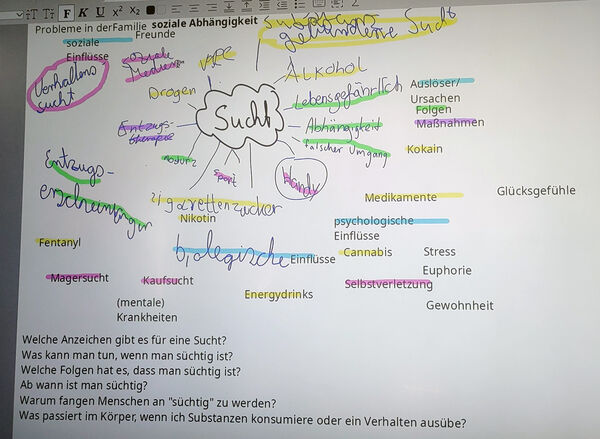 Probleme in derFamilie soziale Abhängigkeit
Freunde
substanz
gebundene Sucht
soziale
Einflüsse
soziale
Medien
Verhaltens
sucht
Alkohol
Drogen
Lebensgefährlich
Auslöser/
Ursachen
Folgen
Maßnahmen
Sucht
Entzugs-
therapie
Abhängigkeit
falscher Umgang
Kokain
Entzugs-
erscheinungen
sport
Handy
zigaretten
zucker
Nikotin
Medikamente
Glücksgefühle
psychologische
Einflüsse
Fentanyl
biologische Einflüsse
Cannabis
Stress
Euphorie
Magersucht
Kaufsucht
Selbstverletzung
Energydrinks
(mentale)
Krankheiten
Gewohnheit
Welche Anzeichen gibt es für eine Sucht?
Was kann man tun, wenn man süchtig ist?
Welche Folgen hat es, dass man süchtig ist?
Ab wann ist man süchtig?
Warum fangen Menschen an "süchtig" zu werden?
Was passiert im Körper, wenn ich Substanzen konsumiere oder ein Verhalten ausübe?